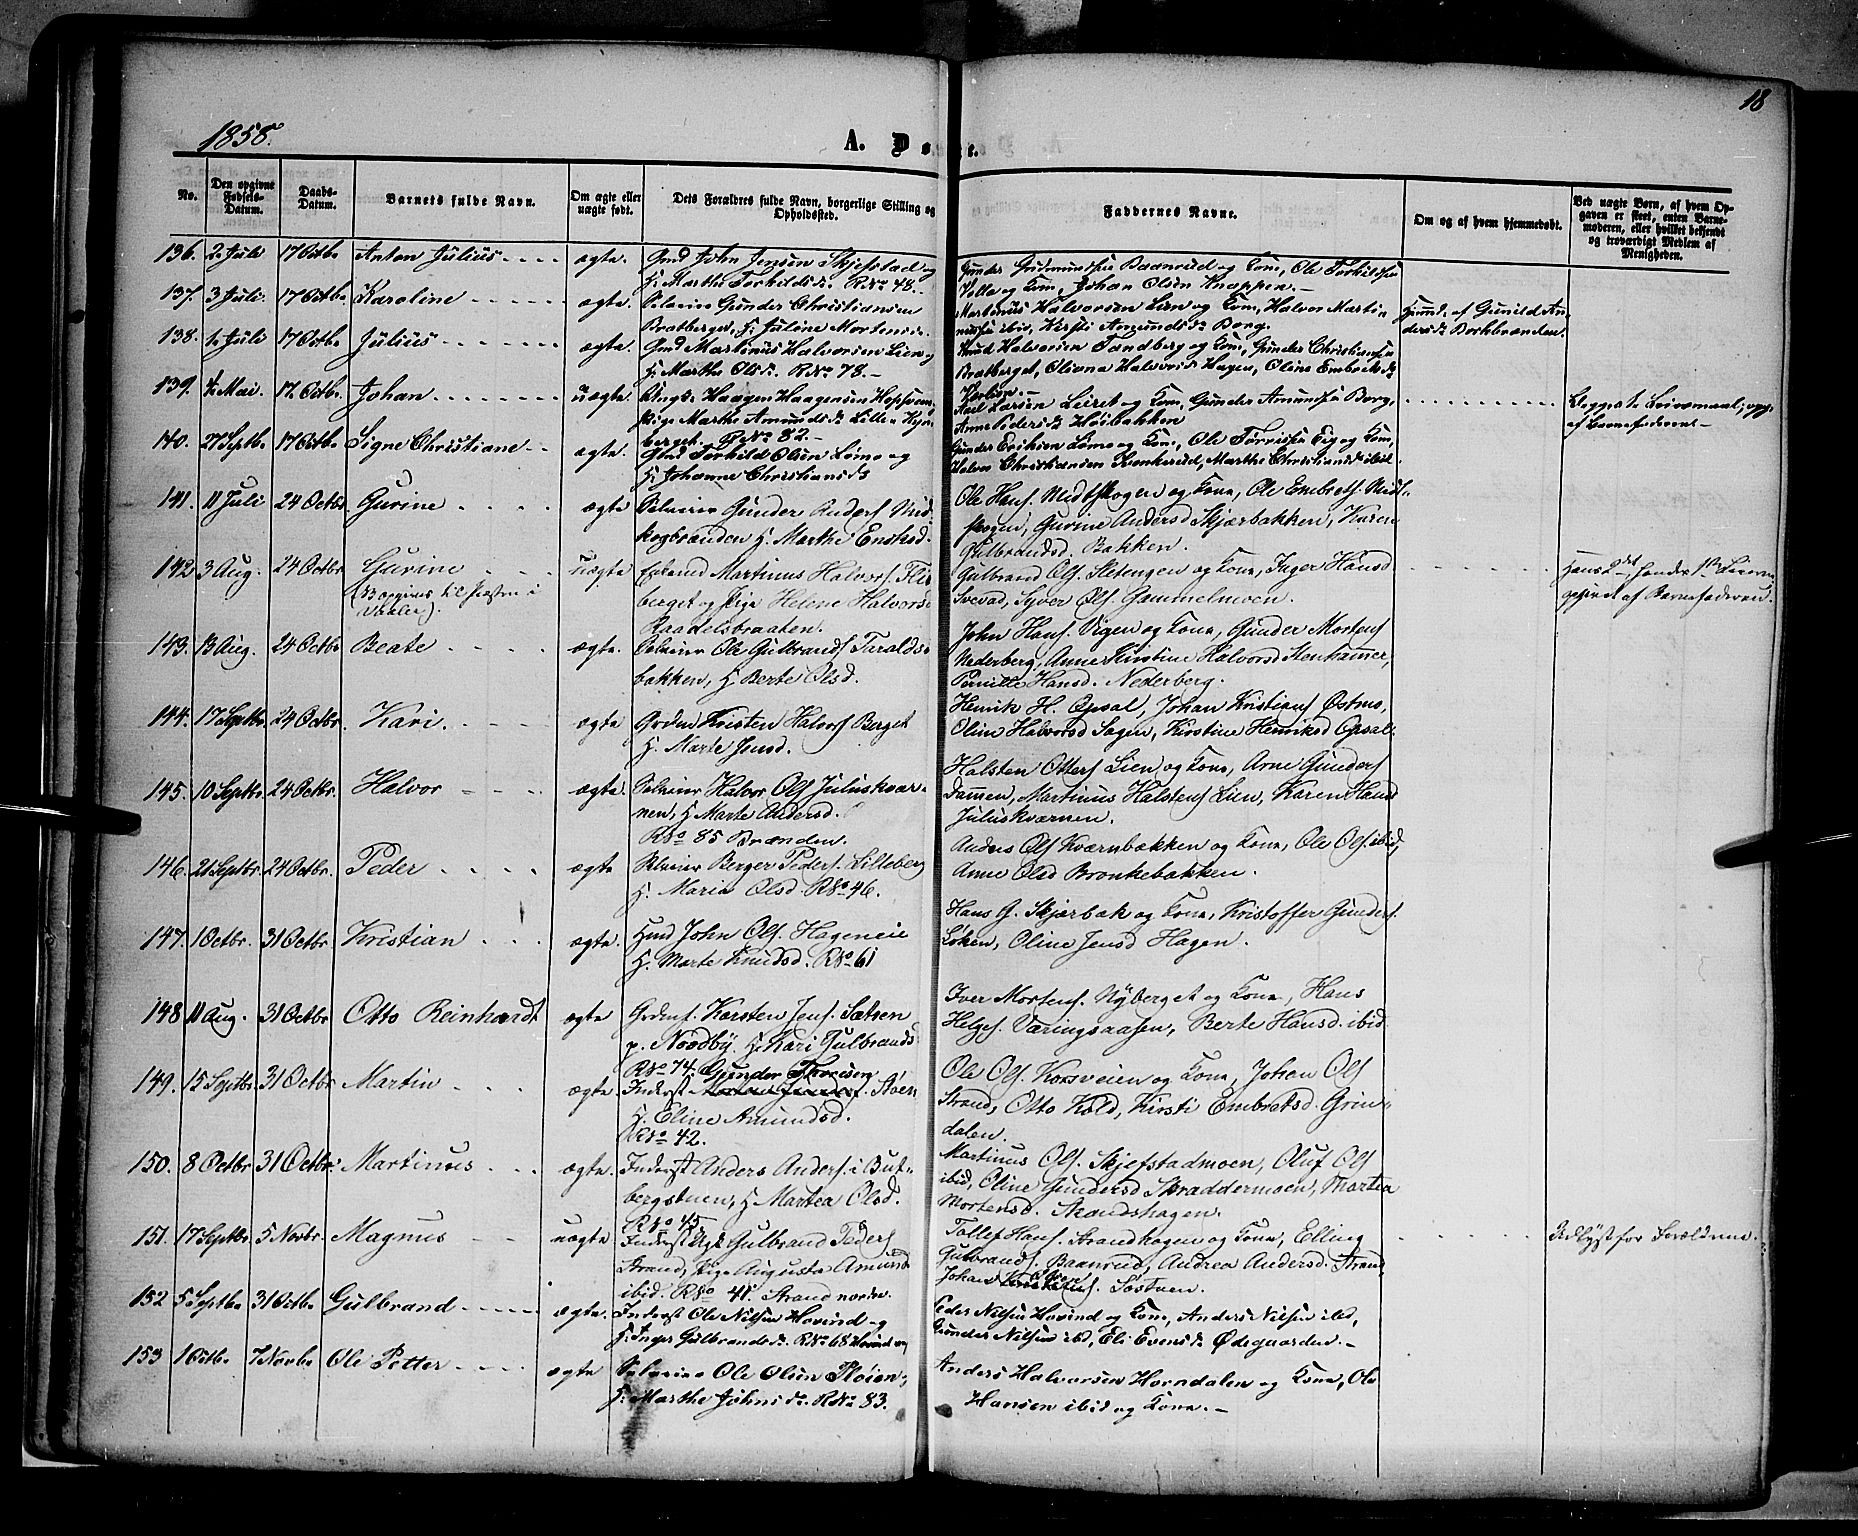 18
1858.
A. D
No.
Den opgivne Fødsels-Datum.
Daabs-Datum.
Barnets fulde Navn.
Om ægte eller uægte født.
Dets Forældres fulde Navn, borgerlige Stilling og Opholdssted.
Faddernes Navne.
Om og af hvem hjemmedøbt.
Ved uægte Børn, af hvem Opgaven er skeet, enten Barnemoderen, eller hvilket bekjendt og troværdigt Medlem af Menigheden.
136. 2 Juli 17 Octbr Anton Julius ægte. Gmd John Jensen Skjefstad og
H. Marthe Torkildsdr. R No 48.
Gunder Gudmundsen Baanrud og Kone, Ole Torkildsen
og Kone, Johan Olsen Knappen.
137. 3 Juli 17 Octbr Karoline ægte. Gunder Christiansen
Bratberget, H. Juline Mortensdr.
Martinus Halvorsen Lien og Kone, Halvor Martinussen ibid, Kirsti Amundsdr Borg.
Hjmd. af Gunild Andersdr Bockbrænden.
138. 1 Juli 17 Octbr Julius ægte. Gmd Martinus Halvorsen Lien og
H. Marthe Olsdr. R No 78.
Knud Halvorsen Tandberg og Kone, Gunder Christiansen
Bratberget, Oliana Halvorsdr Hagen, Oline Embretsdr
139. Mai. 17 Octbr. Johan uægte. Ungk Haagen Haagensen
Pige Marthe Amundsdr Lille
berget. R No 82.
Larsen Leiret og Kone, Gunder Amundsen Borg,
Anne Pedersdr Høibakken
af Barnefaderen
140. 27 Septbr. 17 Octbr Signe Christiane ægte. Gmd Torkild Olsen Lømo og
H. Johanne Christiansdr
Gunder Eriksen Lømo og Kone, Ole Torrisen Eig og Kone,
Halvor Christiansen Kvonkerud, Marthe Christiansdr ibid.
141. 11 Juli 24 Octbr. Gurine ægte Selveier Gunder Anders. Midskogbranden H. Marthe Ensksd.
Ole Hans. Midtskogen og Kone, Ole Embrets. Midtskogen, Gurine Andersd Skjærbakken, Karen
Gulbrandsd. Bakken.
142 3 Aug. 24 Octbr Gurine uægte
(B opgives til Præsten i Vaaler).
Martinus Halvors.
berget og Pige Helene Halvorsd
Raadelsbraaten.
Gulbrand Ols. Sletengen og Kone, Inger Hansd
Svevad, Syver Ols. Gammelmoen.
Hans 2det hendes 1ste
af Barnefaderen.
143. 13 Aug. 24 Octbr Beate ægte. Selveier Ole Gulbrands. Taraldsbakken, H Berte Olsd.
John Hans. Vigen og Kone, Gunder Mortens
Nederberg, Anne Kirstine Halvorsd Stenhammer,
Pernille Hansd. Nederberg.
144. 17 Septbr. 24 Octbr. Kari. ægte Grdm Kristen Halvors Berget
H. Marte Jensd.
Henrik H. Opsal, Johan Kristians Østmo,
Oline Halvorsd Sagen, Kirstine Henriksd Opsal.
145. 10 Septbr. 24 Octbr. Halvor ægte. Selveier Halvor Ols Juluskvernen, H Marte Andersd.
R No 85 Brænden.
Halsten Otters Lien og Kone, Arne Gunders
Dammen, Martinus Halstens Lien, Karen Hansd
Juluskværnen.
146. 21 Septbr. 24 Octbr. Peder ægte Selveier Berger Peders. Lilleberg
H. Maria Olsd. R No 46.
Anders Ols Kværnbækken og Kone, Ole Ols. ibid,
Anne Olsd Bronkebakken.
147. 1 Octbr. 31 Octbr Kristian ægte. Hmd John Ols. Hageneie
H. Marte Knudsd. R No 61
Hans G. Skjærbak og Kone, Kristoffer Gunders.
Løken, Oline Jensd Hagen.
148 11 Aug. 31 Octbr Otto Reinhardt ægte Grdm. Karsten Jens. Sætren
p. Nordby. H. Kari Gulbrands
R No 74.
Iver Mortens. Nyberget og Kone, Hans
Helges. Væringsaasen, Berte Hansd. ibid.
149. 15 Septbr. 31 Octbr. Martin ægte. Gunder Thoresen
Inderst Støen
H. Eline Amundsd.
R No 42.
Ole Ols. Korsveien og Kone, Johan Ols
Strand, Otto Kold, Kirsti Embretsd. Grindalen.
150. 8 Octbr 31 Octbr. Martinus ægte. Inderst Anders Anders. i Butbergstuen, H Martea Olsd.
R No 45
Martinus Ols. Skjefstadmoen, Oluf Ols
ibid, Oline Gundersd Skraddermoen, Martea
Mortensd. Mandshagen.
151. 17 Septbr. 5 Novbr. Magnus uægte Inderst Ugk Gulbrand Peders
Strand, Pige Augusta Amunds
ibid. R No 45. Strand nordre.
Tollef Hans. Strandhagen og Kone, Elling
Gulbrands. Baanrud, Andrea Andersd. Strand,
Johan Søstuen.
Udlyst for Forældrene.
152 5 Septbr 31 Octbr Gulbrand ægte. Inderst Ole Nilsen Hovind og
H. Inger Gulbrandsdr. R No 68 Hovind
Peder Nilsen Hovind og Kone, Anders Nilsen ibid,
Gunder Nilsen ibid, Eli Evensdr Ødegaarden.
153 1 Octbr. 7 Novbr Ole Petter ægte Selveier Ole Olsen Pløien,
H. Marthe Johnsdr. R No 83.
Anders Halvorsen Horndalen og Kone, Ole
Hansen ibid og Kone.